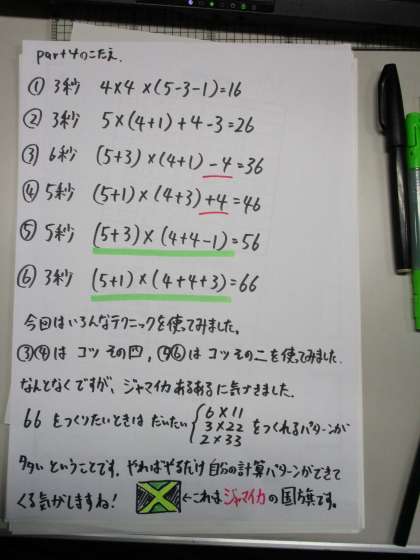 part4のこたえ.
① 3秒 4×4×(5-3-1)=16
② 3秒 5×(4+1)+4-3=26
③ 6秒 (5+3)×(4+1)-4=36
④ 5秒 (5+1)×(4+3)+4=46
⑤ 5秒 (5+3)×(4+4-1)=56
⑥ 3秒 (5+1)×(4+4+3)=66
今回はいろんなテクニックを使ってみました。
③④は コツ その四, ⑤⑥は コツ その二 を使ってみました.
なんとなくですが, ジャマイカあるあるに気がつきました.
66 をつくりたいときは だいたい { 6×11 3×22 2×33 をつくれるパターンが
多い ということです. やればやるだけ 自分の計算パターンができて
くる気がしますね! ←これはジャマイカの国旗です。